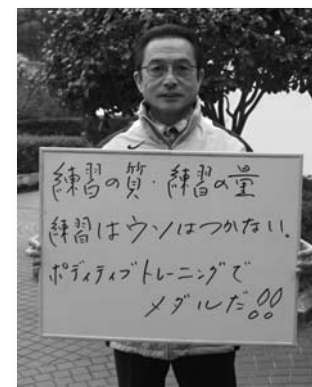 練習の質・練習の量
練習はウソはつかない。
ポディティブトレーニングで
メダルだ!!